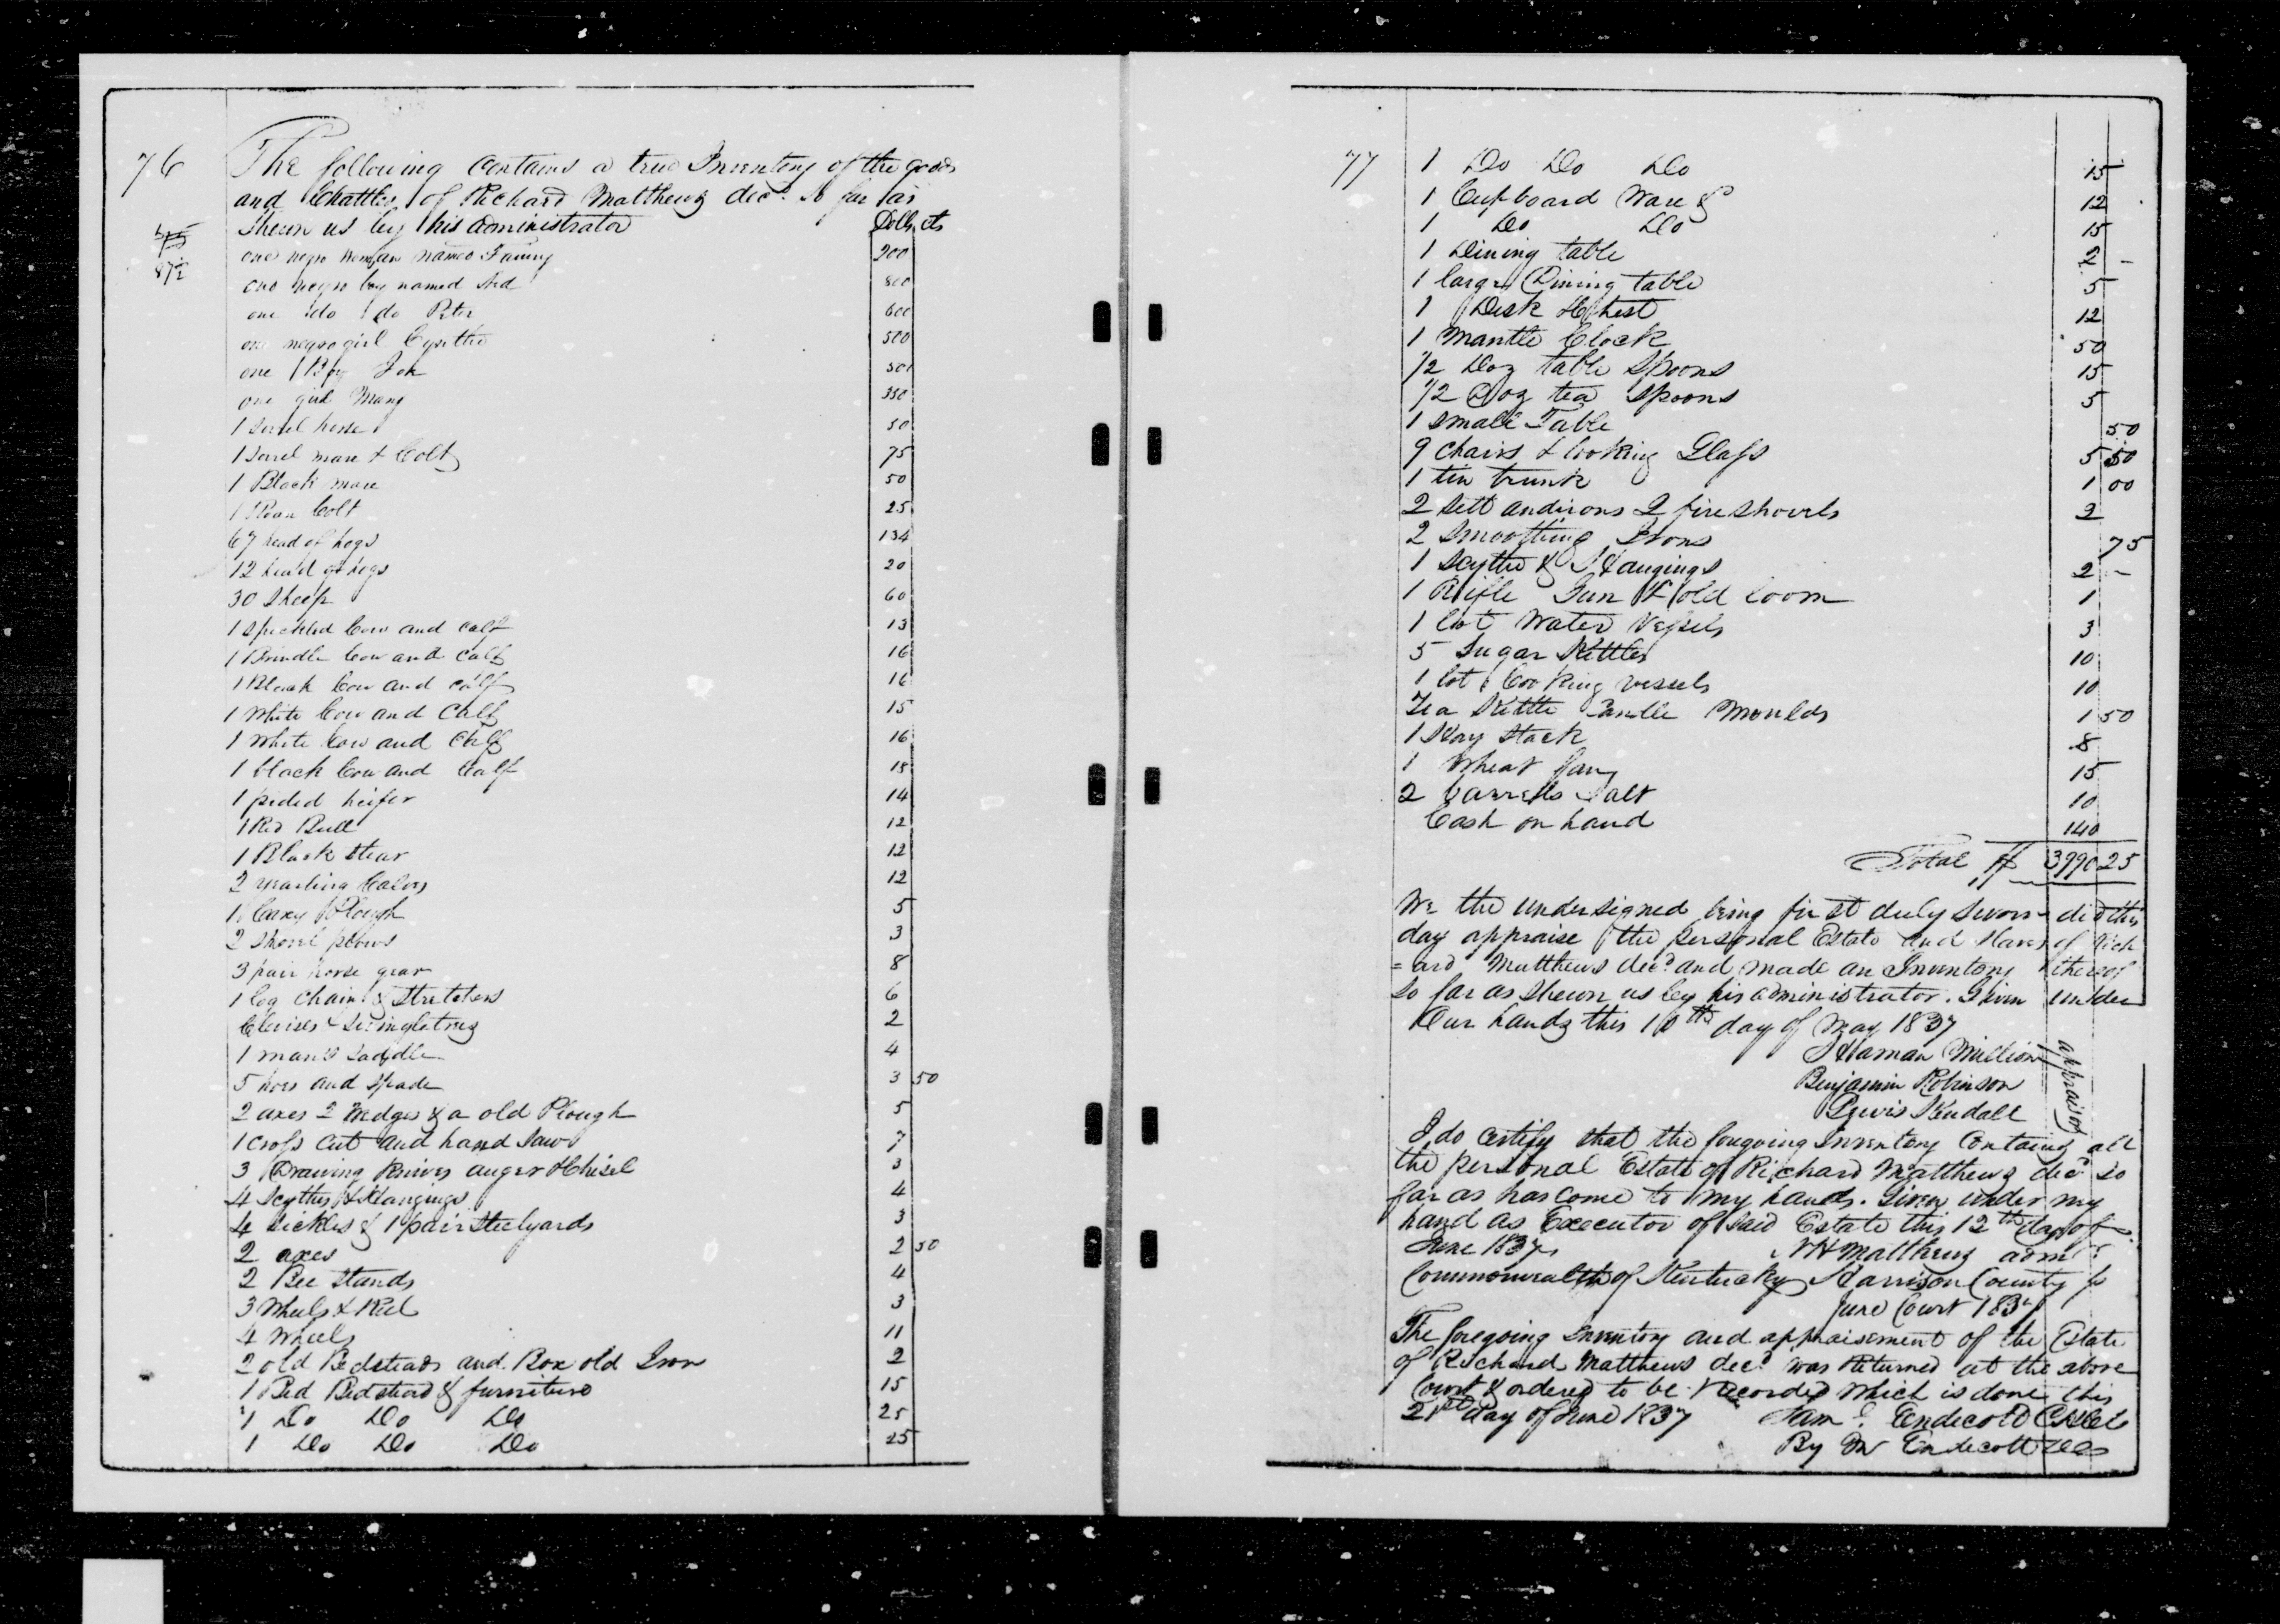 76
The following contains a true Inventory of the goods
and Chattles of Richard Matthews decd. so far as
shewn us by his administrator Dolls cts
87½
one negro woman named Fanny 200
one negro boy named 800
one do do Peter 600
one negro girl Cynthe 500
one Boy
one girl Mary 350
1 Sorrel horse 50
1 Sorrel mare & Colt 75
1 Black mare 50
1 Roan Colt 25
67 head of hogs 134
12 head of hogs 20
30 Sheep 60
1 speckled Cow and calf 13
1 Brindle Cow and calf 16
1 Black Cow and calf 16
1 White Cow and Calf 15
1 White Cow and Calf 16
1 black Cow and Calf 18
1 pided heifer 14
1 Red Bull 12
1 Black stear 12
2 yearling Calves 12
1 Cary Plough 5
2 shovel plows 3
3 pair horse gear 8
1 log chain & Stretchers 6
Clevises & Swingletrees 2
1 man's saddle 4
5 hoes and spade 3 50
2 axes 2 Wedges & a old Plough 5
1 Cross cut and hand saw 7
3 Drawing knives auger & Chisel 3
4 Scythes & Hangings 4
4 sickles & 1 pair Steelyards 3
2 axes 2 50
2 Bee stands 4
3 Wheels & Reel 3
4 Wheels 11
2 old Bedsteads and Box old Iron 2
1 Bed Bedstead & furniture 15
1 Do Do Do 25
1 Do Do Do 25
77
1 Do Do Do 15
1 Cupboard Ware & 12
1 Do Do 15
1 Dining table 2 -
1 large Dining table 5
1 Desk & Chest 12
1 Mantle Clock 50
1/2 Doz table Spoons 15
1/2 Doz tea Spoons 5
1 small Table 50
9 Chairs & looking Glass 5 50
1 tin trunk 1 00
2 sett andirons 2 fire shovels 2
2 Smoothing Irons 75
1 Scythe & Hangings 2 -
1 Rifle Gun & old loom 1
1 lot Water Vessels 3
5 Sugar Kettles 10
1 lot Cooking vessels 10
Tea Kettle Candle Moulds 1 50
1 Hay Stack 8
1 Wheat fan 15
2 barrells Salt 10
Cash on hand 140
Total $ 3990 25
We the undersigned being first duly sworn did this
day appraise the personal Estate and slaves of Rich
=ard Matthews decd. and made an Inventory thereof
so far as shewn us by his administrator. Given under
Our hands this 10th day of May 1837
Haman Million
Benjamin Robinson
Lewis Kendall
appraisors
I do certify that the foregoing Inventory Contains all
the personal Estate of Richard Matthews decd so
far as has come to my hands. Given under my
hand as Executor of said Estate this 12th day of
June 1837 N H Matthews admr
Commonwealth of Kentucky Harrison County
June Court 1837
The foregoing Inventory and appraisement of the Estate
of Richard Matthews decd. was Returned at the above
Court & ordered to be recorded which is done this
21st day of June 1837 Sam Endecott
By Endecott